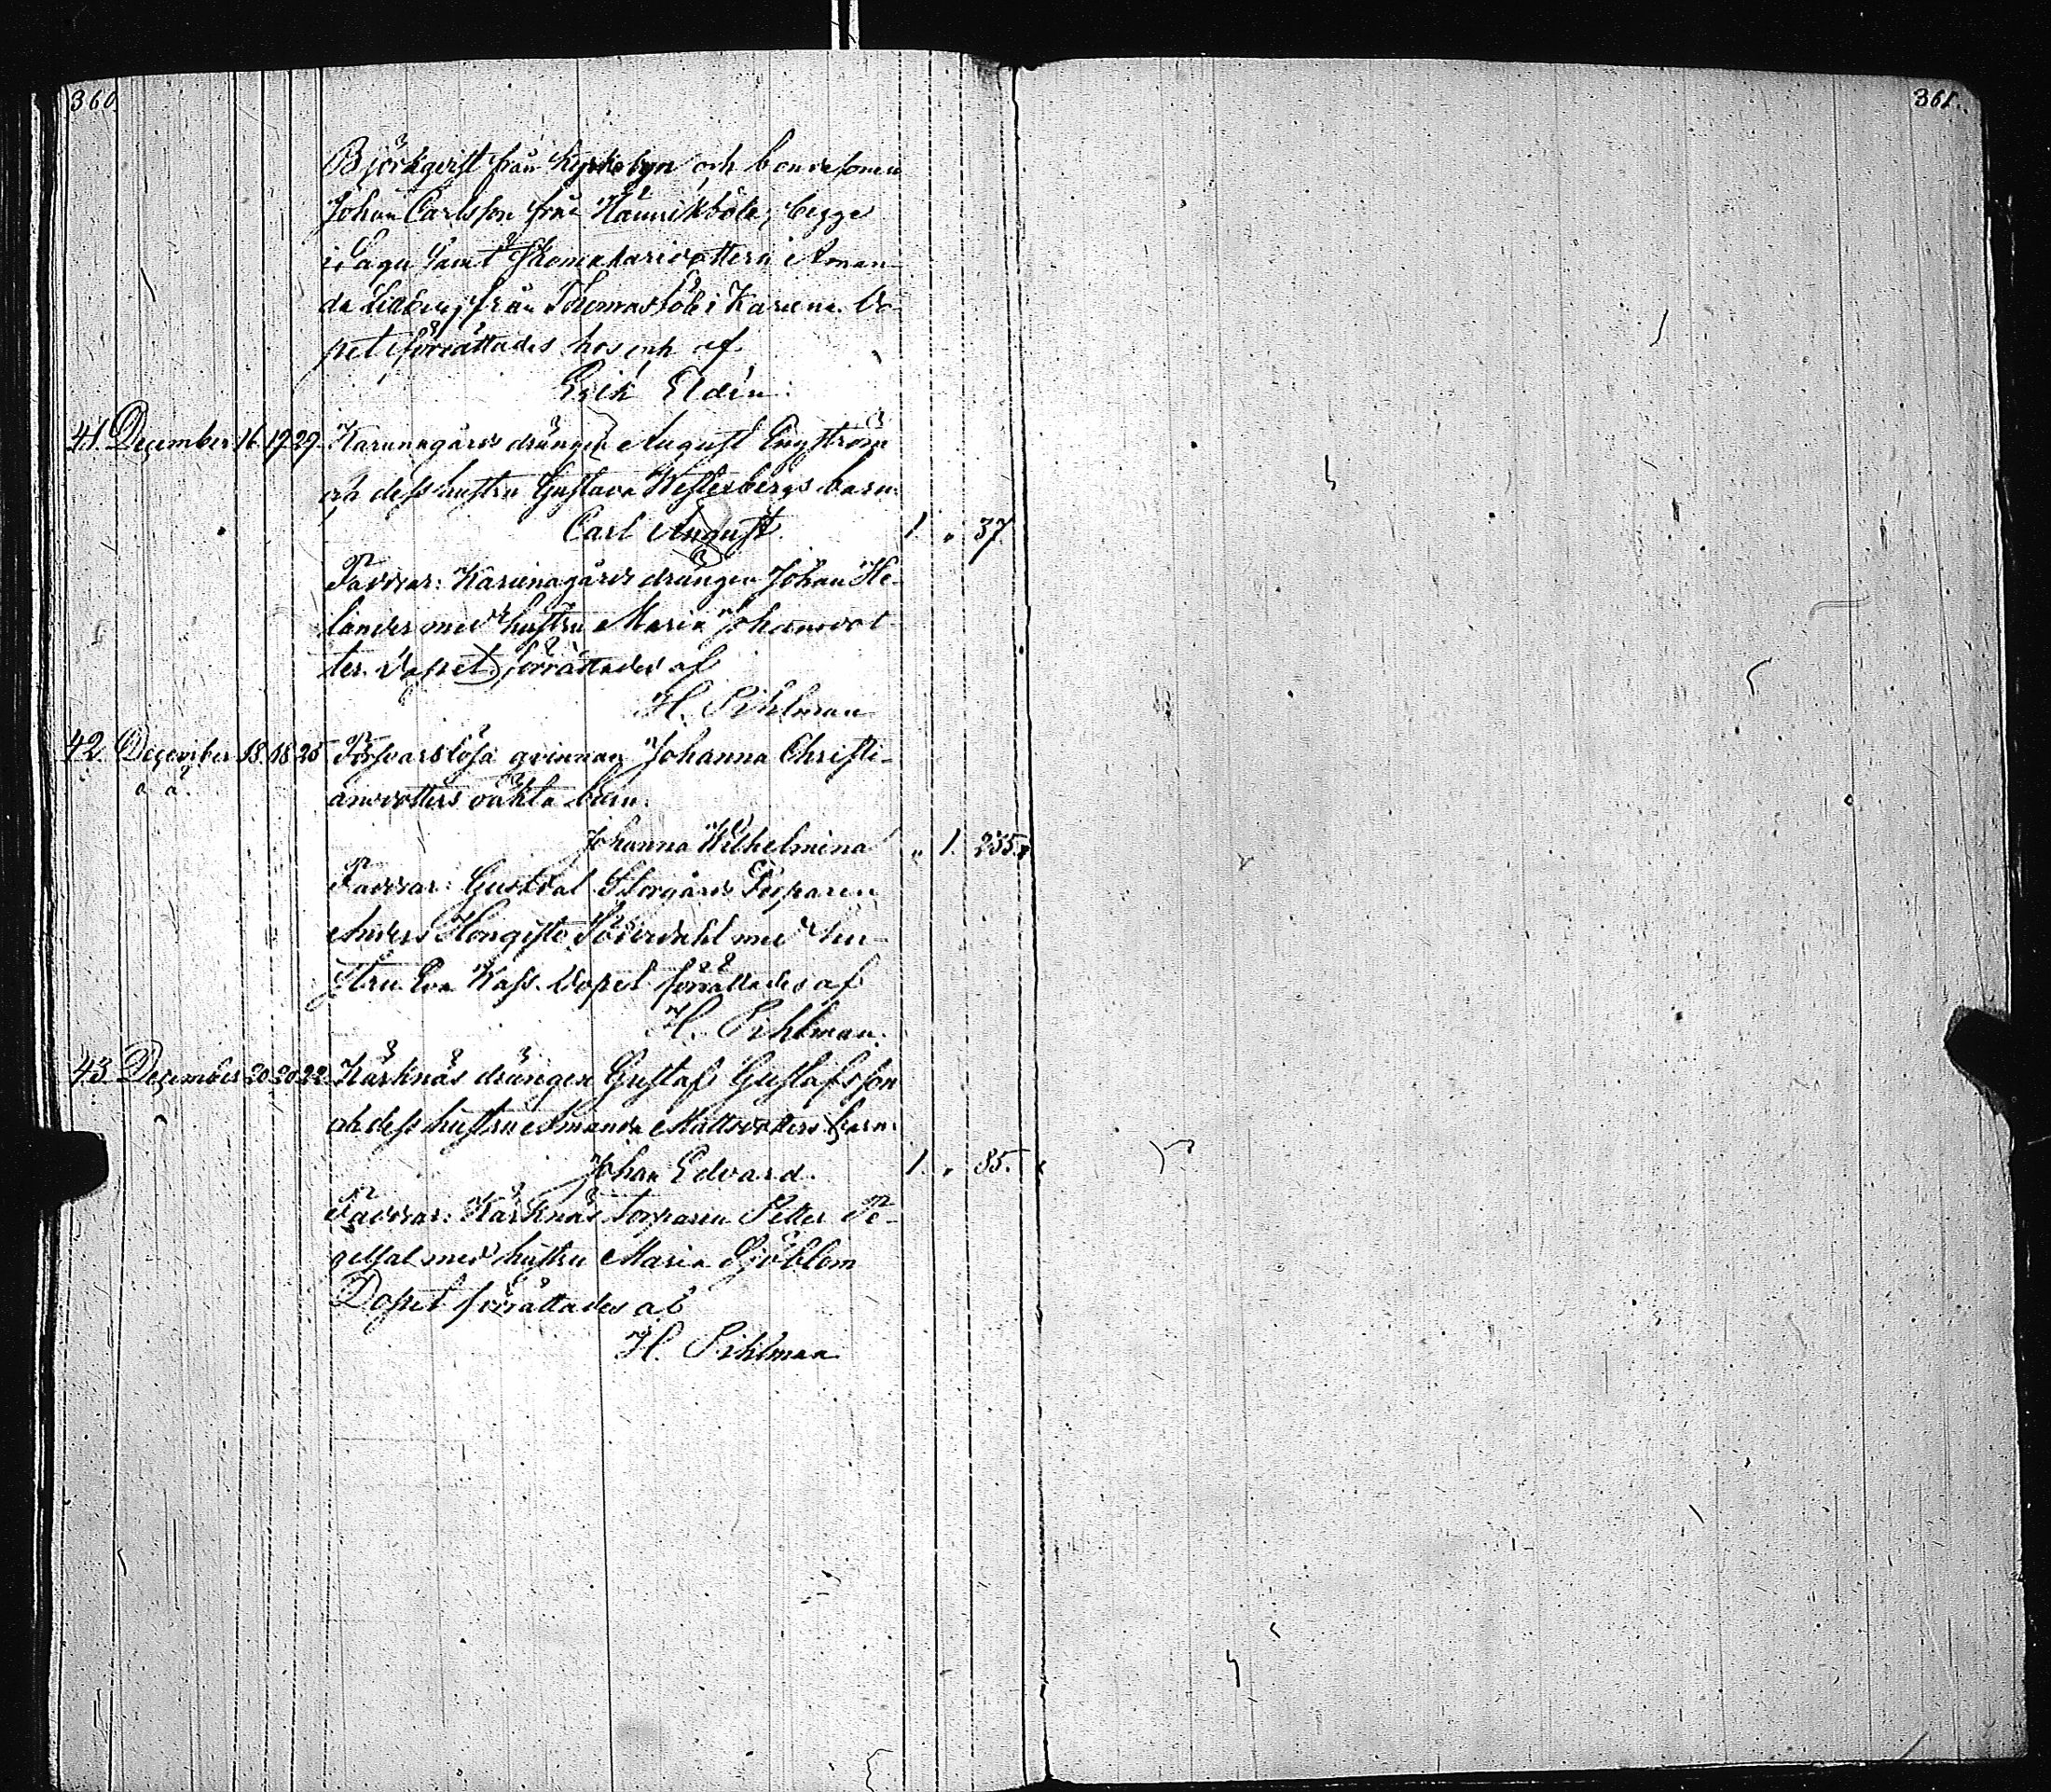 360.
361.
Björkqvist från Kyrkobyn och bondesonen
Johan Carlsson från Hännikböle, begge
i Sagu samt Skomakaredottern Aman-
da Lidberg från Thomasböle i Karuna. Do-
pet förrättades hos och af
Erik Eldén.
41. December 16. 19. 29. Karunagårds drängen August Engström
och dess hustru Gustava Westerbergs barn
Carl August. 1. " 37
Faddrar: Karunagårds drängen Johan He-
lander med hustru Maria Johansdot
ter. Dopet förrättades af
H. Pihlman
42. December 18. 18. 25 Försvarslösa qvinnan Johanna Christi-
ansdotters oäkta barn.
Johanna Wilhelmina " 1. 255.
Faddrar: Gustdal Storgårds Torparen
Anders Hongisto Söderdahl med hu-
stru Eva Kass. Dopet förrättades af
H. Pihlman.
43 December 20. 20. 22. Kärknäs drängen Gustaf Gustafsson
och dess hustru Amanda Mattsdotters barn
Johan Edvard. 1. " 85.
Faddrar: Kärknäs torparen Petter
med hustru Maria Sjöblom
Dopet förrättades af
H. Pihlman